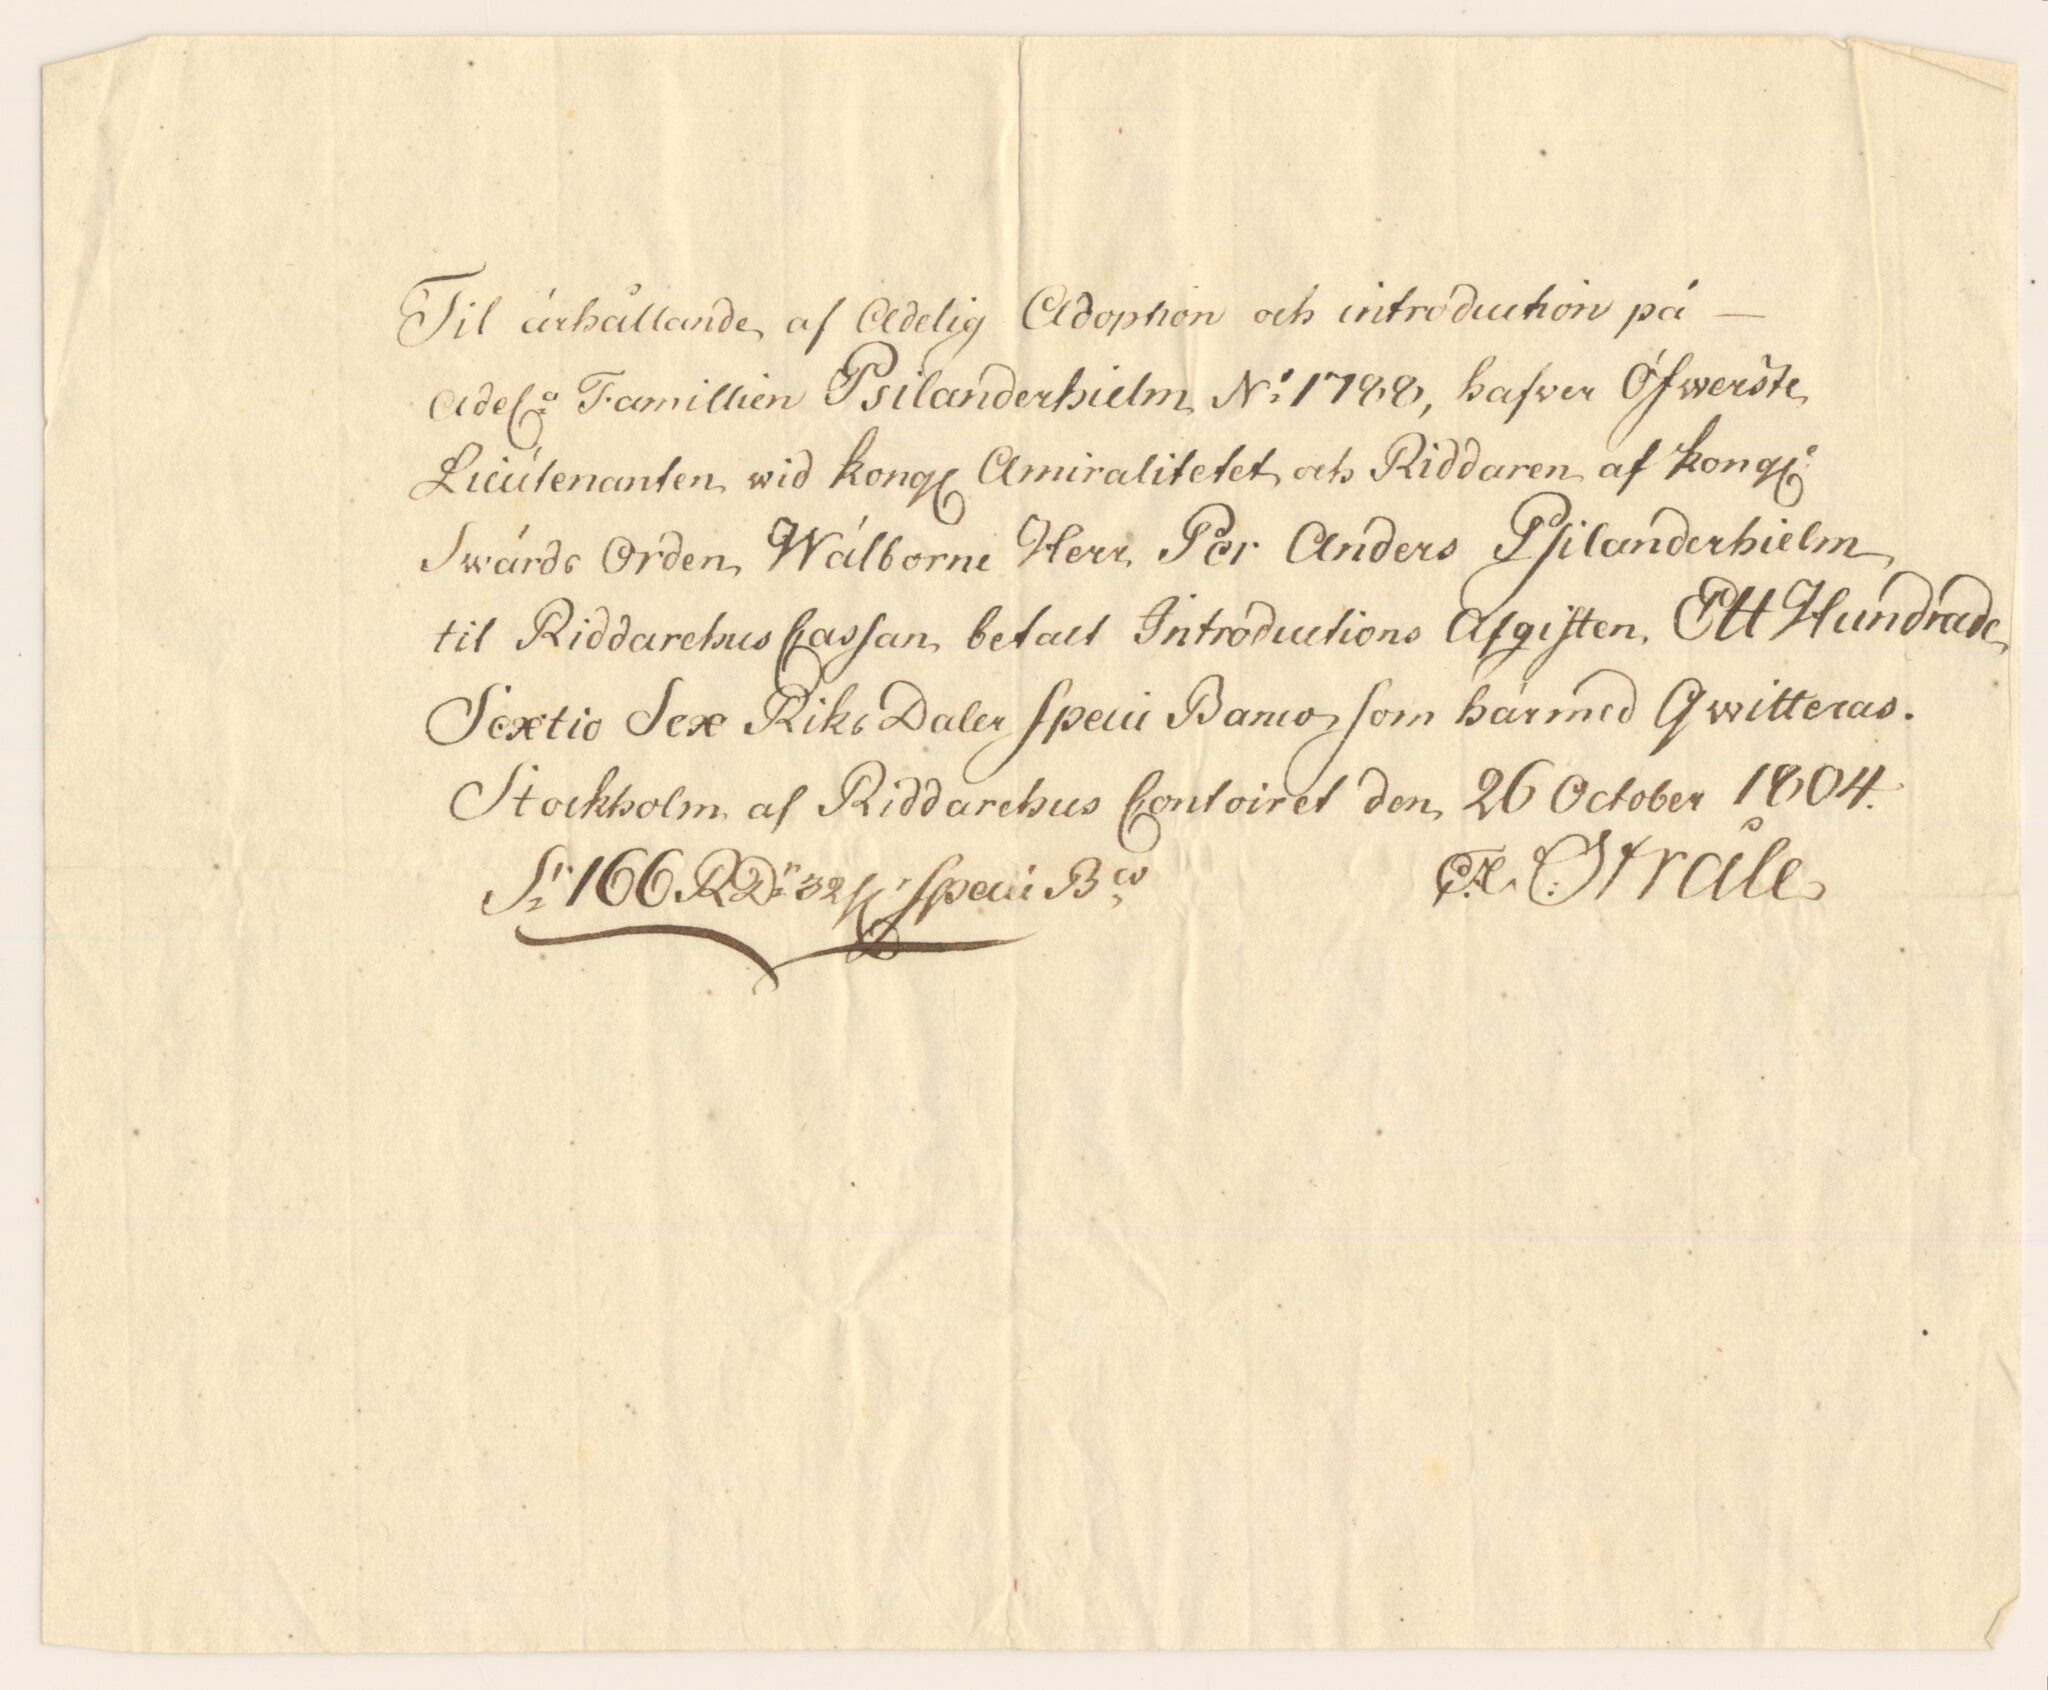 Til ärhållande af Adelig Adoption och introduction på —
Adel:a Famillien Psilanderhielm No: 1788, hafver Öfwerste
Lieutenanten wid Kongl Amiralitetet och Riddaren af Kongl:
Swärds Orden Wälborne Herr Per Anders Psilanderhielm
til Riddarehus Cassan betalt Introductions Afgiften Ett Hundrade
Sextio Sex Riks Daler Specie Banco, som härmed Qwitteras.
Stockholm af Riddarehus Contoiret den 26 October 1804.
Sr 166 RDr 32 s Specie Bco
Stråle